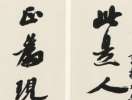 此是人
正為現